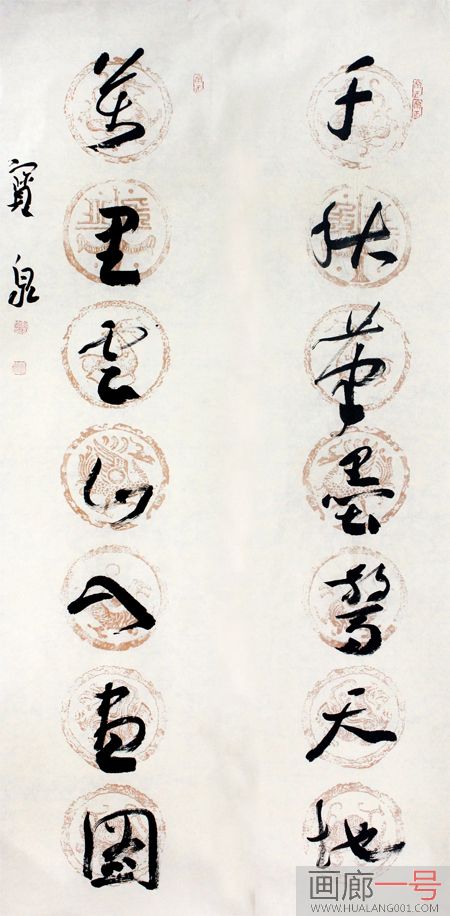 千秋筆墨驚天地
萬里雲山入畫圖
寶泉
画廊一号
WWW.HUALANG001.COM